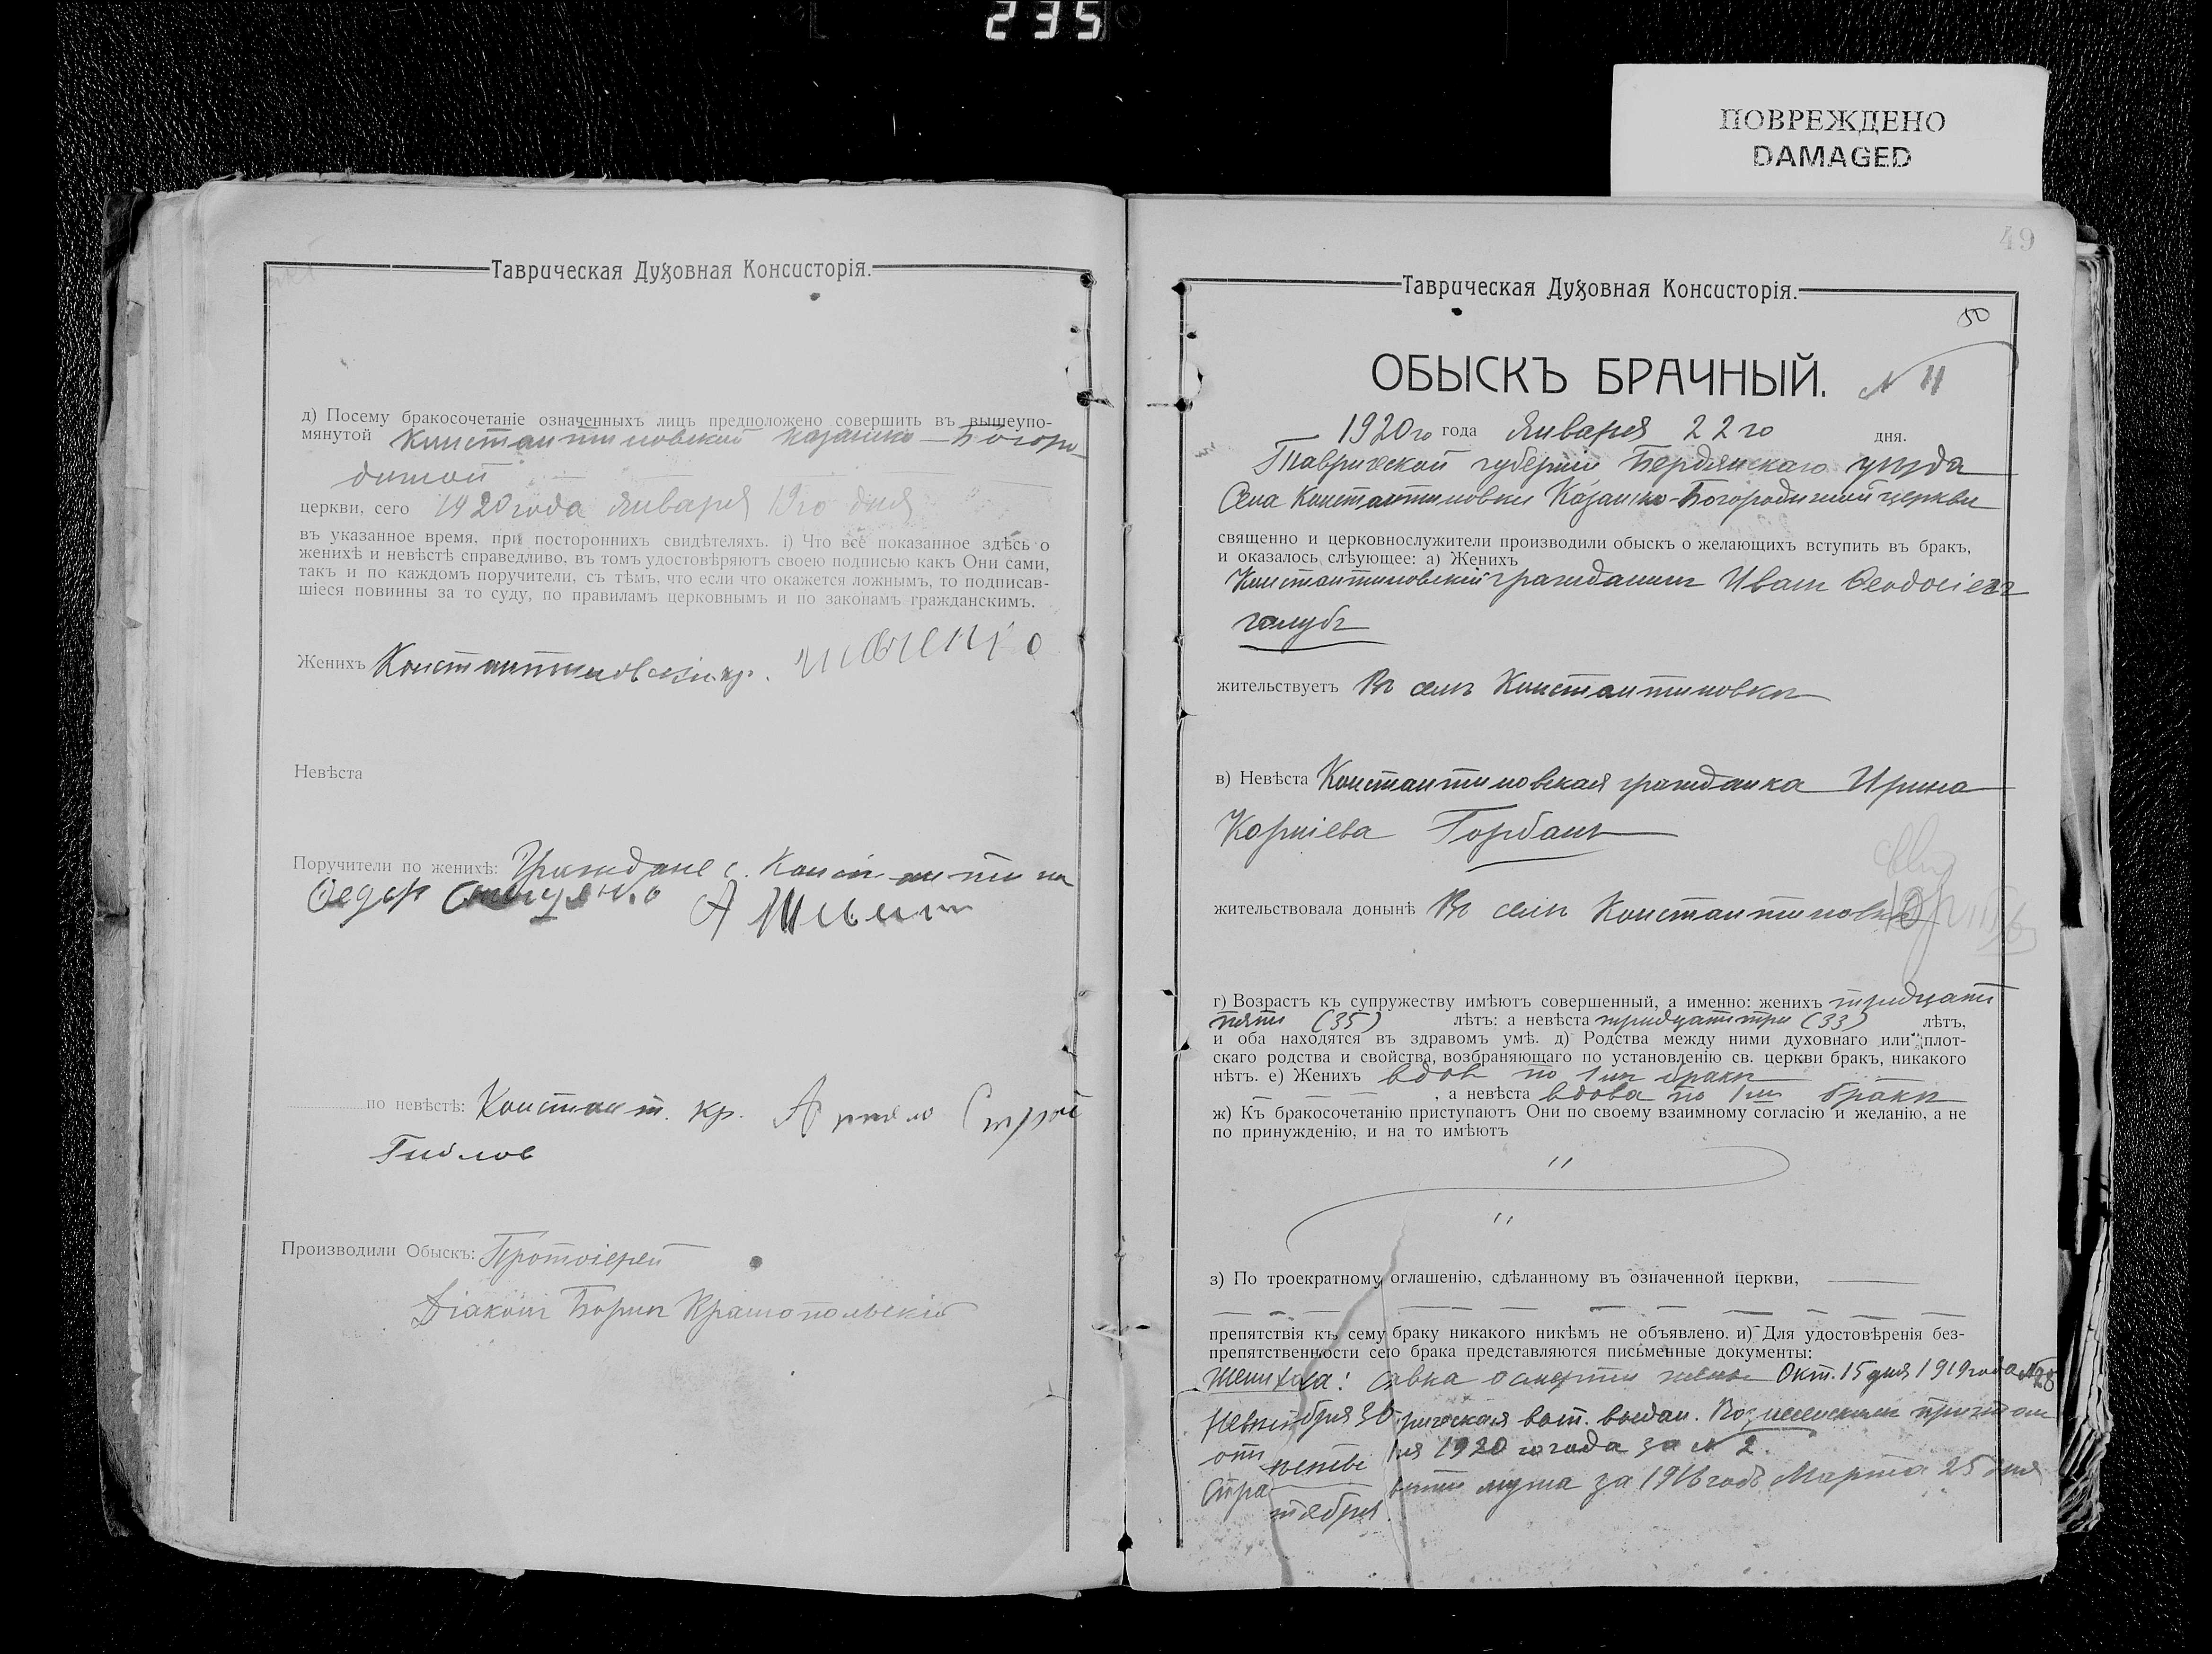 235
ПОВРЕЖДЕНО
DAMAGED
Таврическая Духовная Консисторія.
д) Посему бракосочетаніе означенныхъ лицъ предположено совершить въ вышеупо-
мянутой Константиновской Казанско-Богоро-
дичной
церкви, сего 1920 года Января 19го дня
въ указанное время, при постороннихъ свидѣтеляхъ. і) Что все показанное здѣсь о
женихѣ и невѣстѣ справедливо, въ томъ удостовѣряютъ своею подписью какъ Они сами,
такъ и по каждомъ поручители, съ тѣмъ, что если что окажется ложнымъ, то подписав-
шіеся повинны за то суду, по правиламъ церковнымъ и по законамъ гражданскимъ.
Женихъ Константиновскій гр.
Невѣста
Поручители по женихѣ: Граждане с. Константин
Федор
по невѣстѣ: Констант. кр.
Производили Обыскъ: Протоіерей
Діаконъ Борисъ Краснопольскій
49
Таврическая Духовная Консисторія.
50
ОБЫСКЪ БРАЧНЫЙ. N 11
1920го года Января 22го дня.
Таврической губерніи Бердянскаго уѣзда
Села Константиновки Казанско-Богородичной церкви
священно и церковнослужители производили обыскъ о желающихъ вступить въ бракъ,
и оказалось слѣующее: а) Женихъ
Константиновскій гражданинъ Иванъ Феодосіевъ
Голубъ
жительствуетъ Въ селѣ Константиновкѣ
в) Невѣста Константиновская гражданка Ирина
Корніева Горбань
жительствовала донынѣ Въ селѣ Константиновкѣ
г) Возрастъ къ супружеству имѣютъ совершенный, а именно: женихъ тридцати
пяти (35) лѣтъ: а невѣста тридцати три (33) лѣтъ,
и оба находятся въ здравомъ умѣ. д) Родства между ними духовнаго или плот-
скаго родства и свойства, возбраняющаго по установленію св. церкви бракъ, никакого
нѣтъ. е) Женихъ вдовъ по 1мъ бракѣ
, а невѣста вдова по 1мъ бракѣ
ж) Къ бракосочетанію приступаютъ Они по своему взаимному согласію и желанію, а не
по принужденію, и на то имѣютъ
"
"
з) По троекратному оглашенію, сдѣланному въ означенной церкви,
препятствія къ сему браку никакого никѣмъ не объявлено. и) Для удостовѣренія без-
препятственности сего брака представляются письменные документы:
Жениха: о смерти жены Окт. 15 дня 1919 года №28
1920 го года за N 2.
мужа за 1916 годъ Марта 25 дня